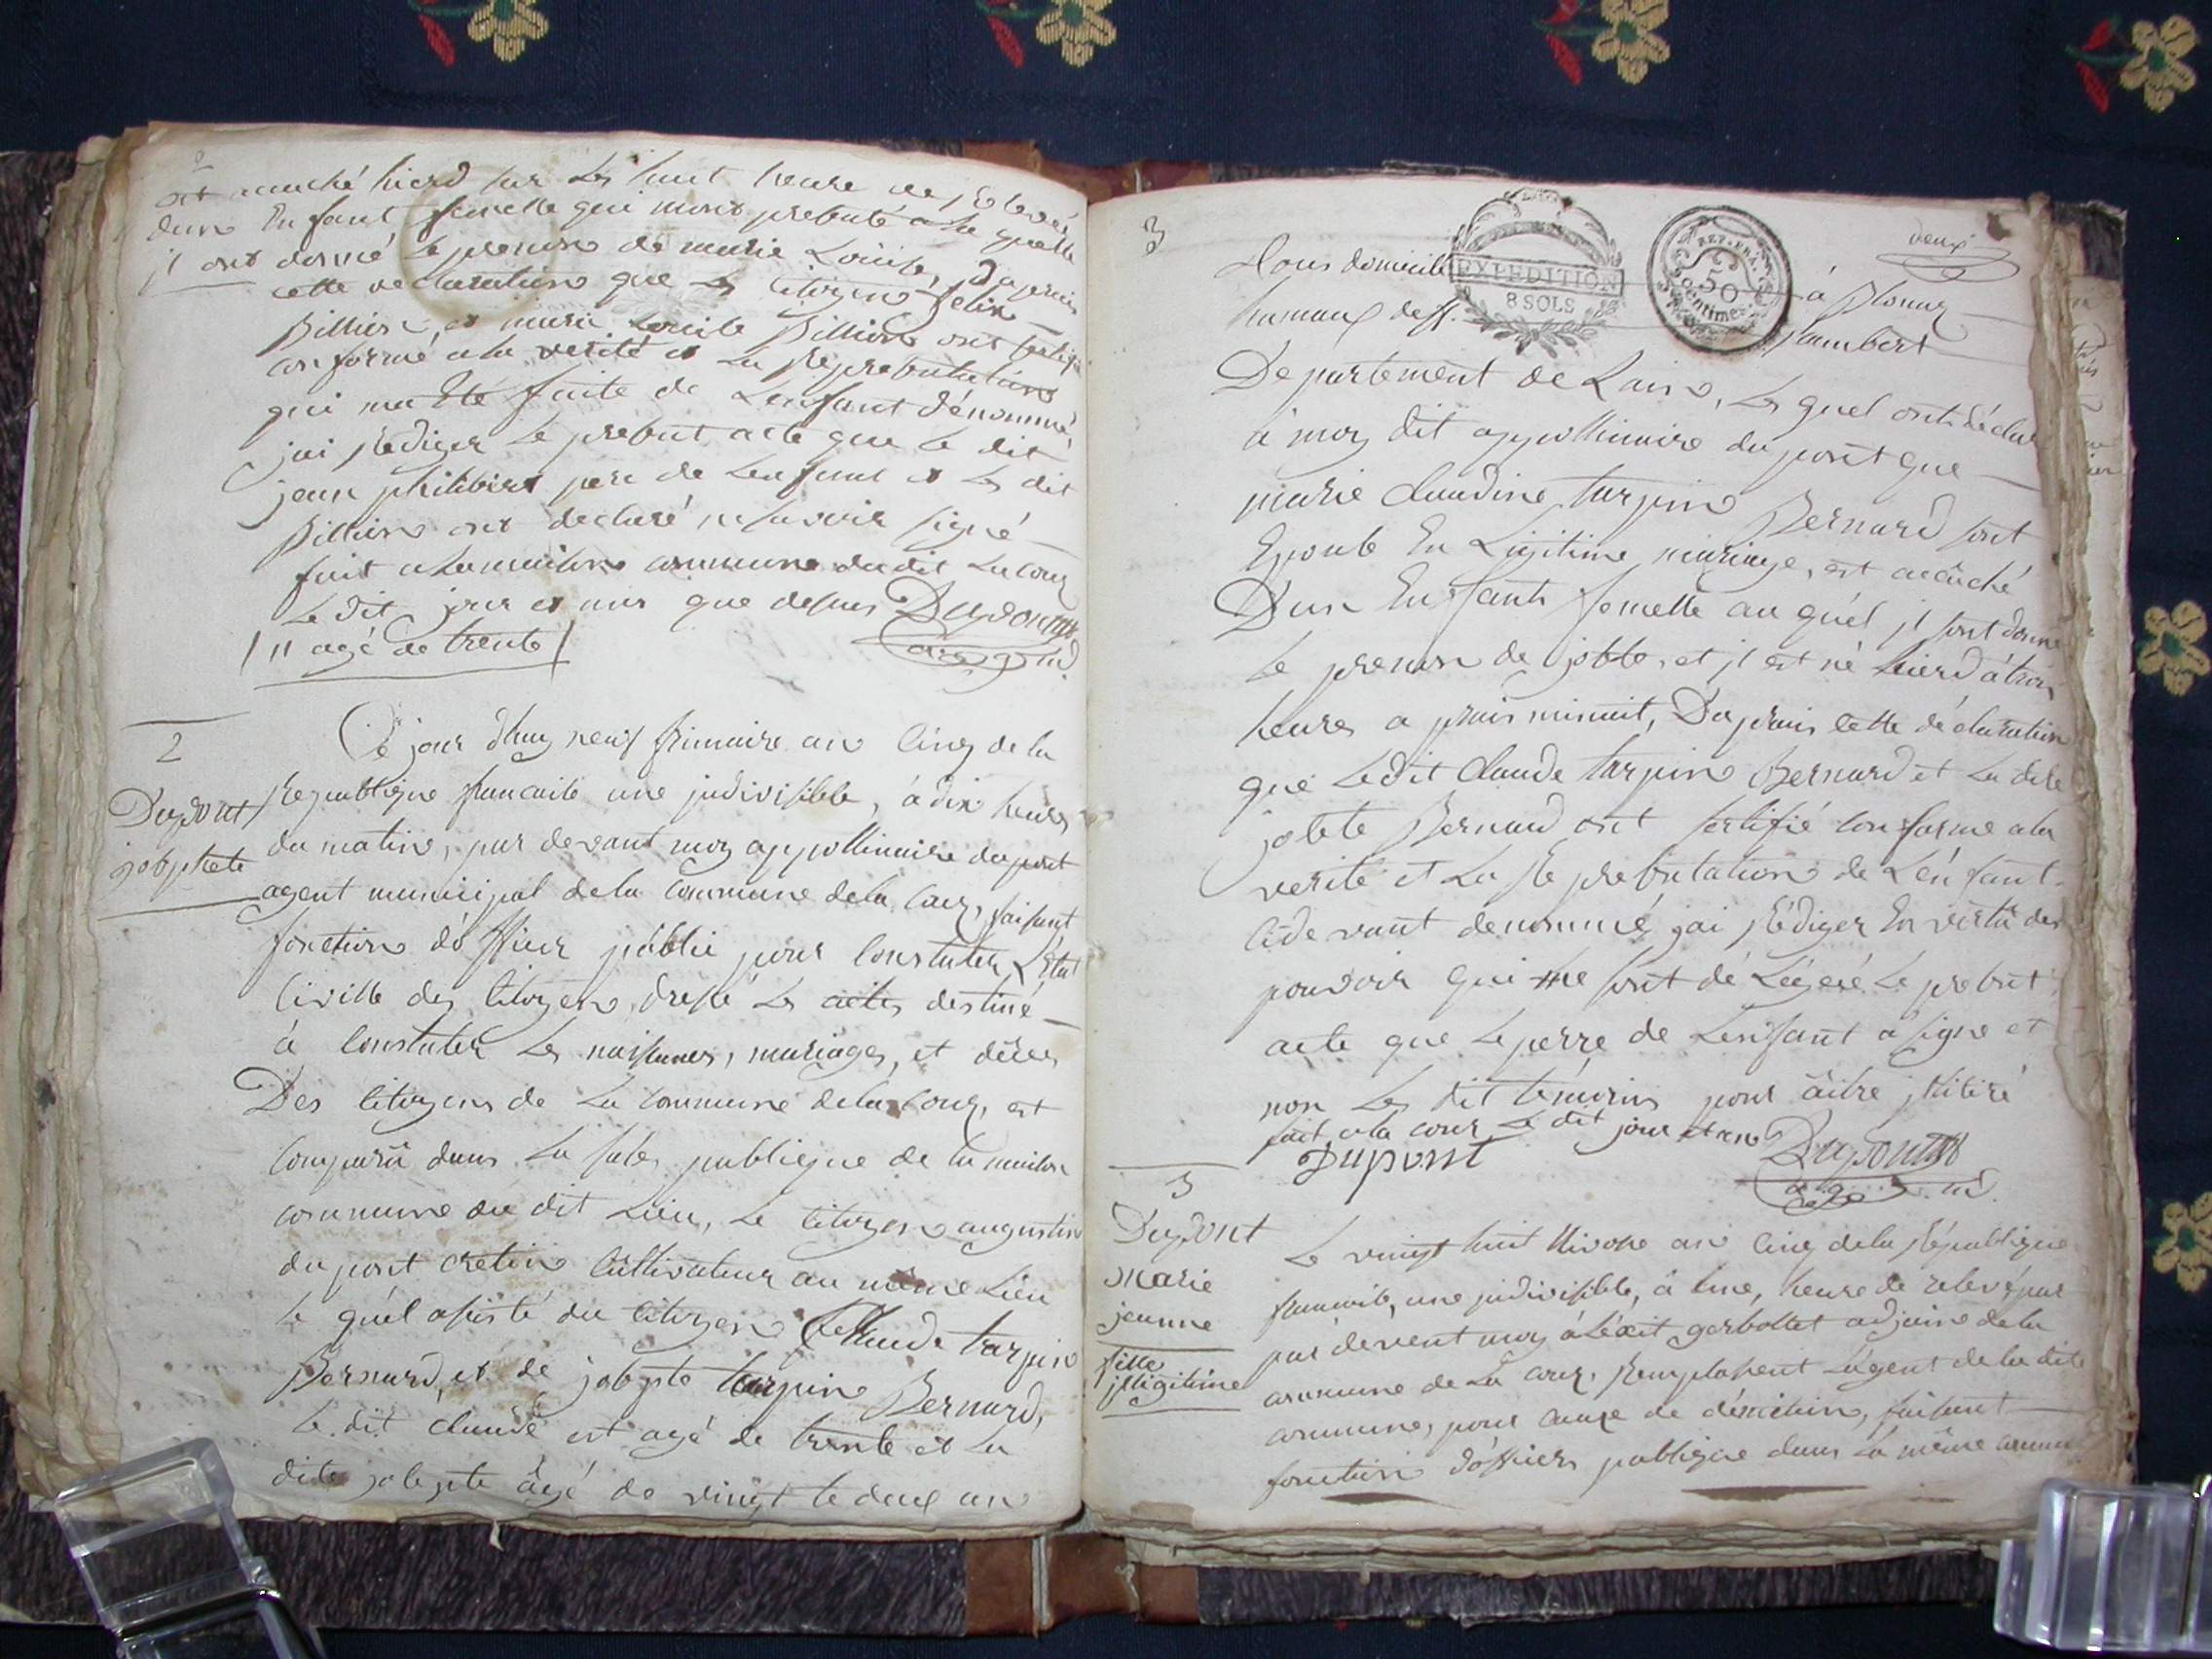 2
ont acouché hierd sur les huit heure de relevé,
dun Enfant femelle qui mont presenté a la quelle
jl ont donné le prenon de marie Louise, Daprais
cette declaration que les Citoyen felix
Billion, et marie Louise Billion ont sertifié
conforme a la verité et La Representation
qui ma Eté faite de Lenfant dénommé,
jai Rediger le presant acte que le dit
jean philibert pere de Lenfant et les dit
Billion ont declaré ne savoir signé
fait a la maison commune du dit Lacoux
Le dit jour et an que desus Dupont
ag m.
// agé de trente/
2
Dupont
josephete
Ce jour dhuy neuf frimaire an Cinq de la
Republique francaise une jndivisible, à dix heures
du matin, par devant moy appollinaire dupont
agent municipal de la Commune dela Coux, faisant
fonction dófficier públic pour Constater L'état
Civille des Citoyen, dressé les actes destiné
à Constater les naissances, mariages, et déces
Des Citoyens de La Commune dela Coux, est
Comparû dans La sale publieque de la maison
commune du dit Lieu, le Citoyen augustin
du pont cretin Cultivateur au même Lieu
le quel asisté du Citoyen Claude tarpin
Bernard, et de josepte tarpin Bernard,
le dit claude est agé de trente et La
dite josepte âgé de vingt te deux an
3
deux
EXPEDITION
8 SOLS
REP. FRA.
50
centimes
tous domicile à Plomb
humaux de st. Rambert
Departement de Lain, les quel ont déclaré
à moy dit appollinaire du pont que
marie claudine tarpin Bernard sont
Epouse En Ligitime mariage, est acouché
D'un Enfant femelle au quel jl sont donné
le prenon de josette, et jl est né hierd à trois
heures a prais minuit, Daprais cette déclaration
que ledit Claude tarpin Bernard et La dite
josete Bernard ont sertifié conforme a la
verité et La Representation de Lénfant
Cidevant denommé, jai Rédiger En vertû des
pouvoir qui me sont dé Légeré le presant
acte que le perre de Lenfant a signe et
non les dit témoins pour âitre jllitiré
fait a la coux le dit jour et an Dupont
Dupont ag m.
3
Dupont
Marie
jeanne
fille
jlligitime
Le vingt huit Nivose an Cinq dela République
francaise, une jndivisible, à une, heure de relevé par
par devent moy aléxit gerbollet adjoint dela
commune de La Coux, Remplassent Lagent de la dite
commune, pour cause de démition, faisant
fonction dófficier publique dans La même commune